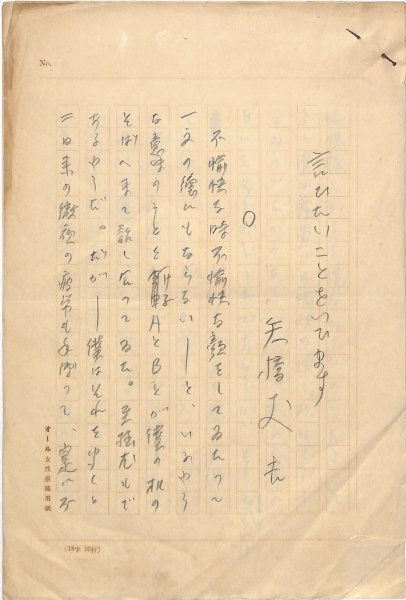 No.
言ひたいことをいひます
矢橋丈吉
○
不愉快な時不愉快な顔をしてゐたつて
一文の徳にもならない――と、いふやう
な意味のことを AとBとが僕の机の
そばへ来て話し合つてゐた。至極尤もで
あるやうだ。だが――僕はそれを少くと
二日来の微熱の疲労も手伝つて、
オール女性原稿用紙
(18字 10行)